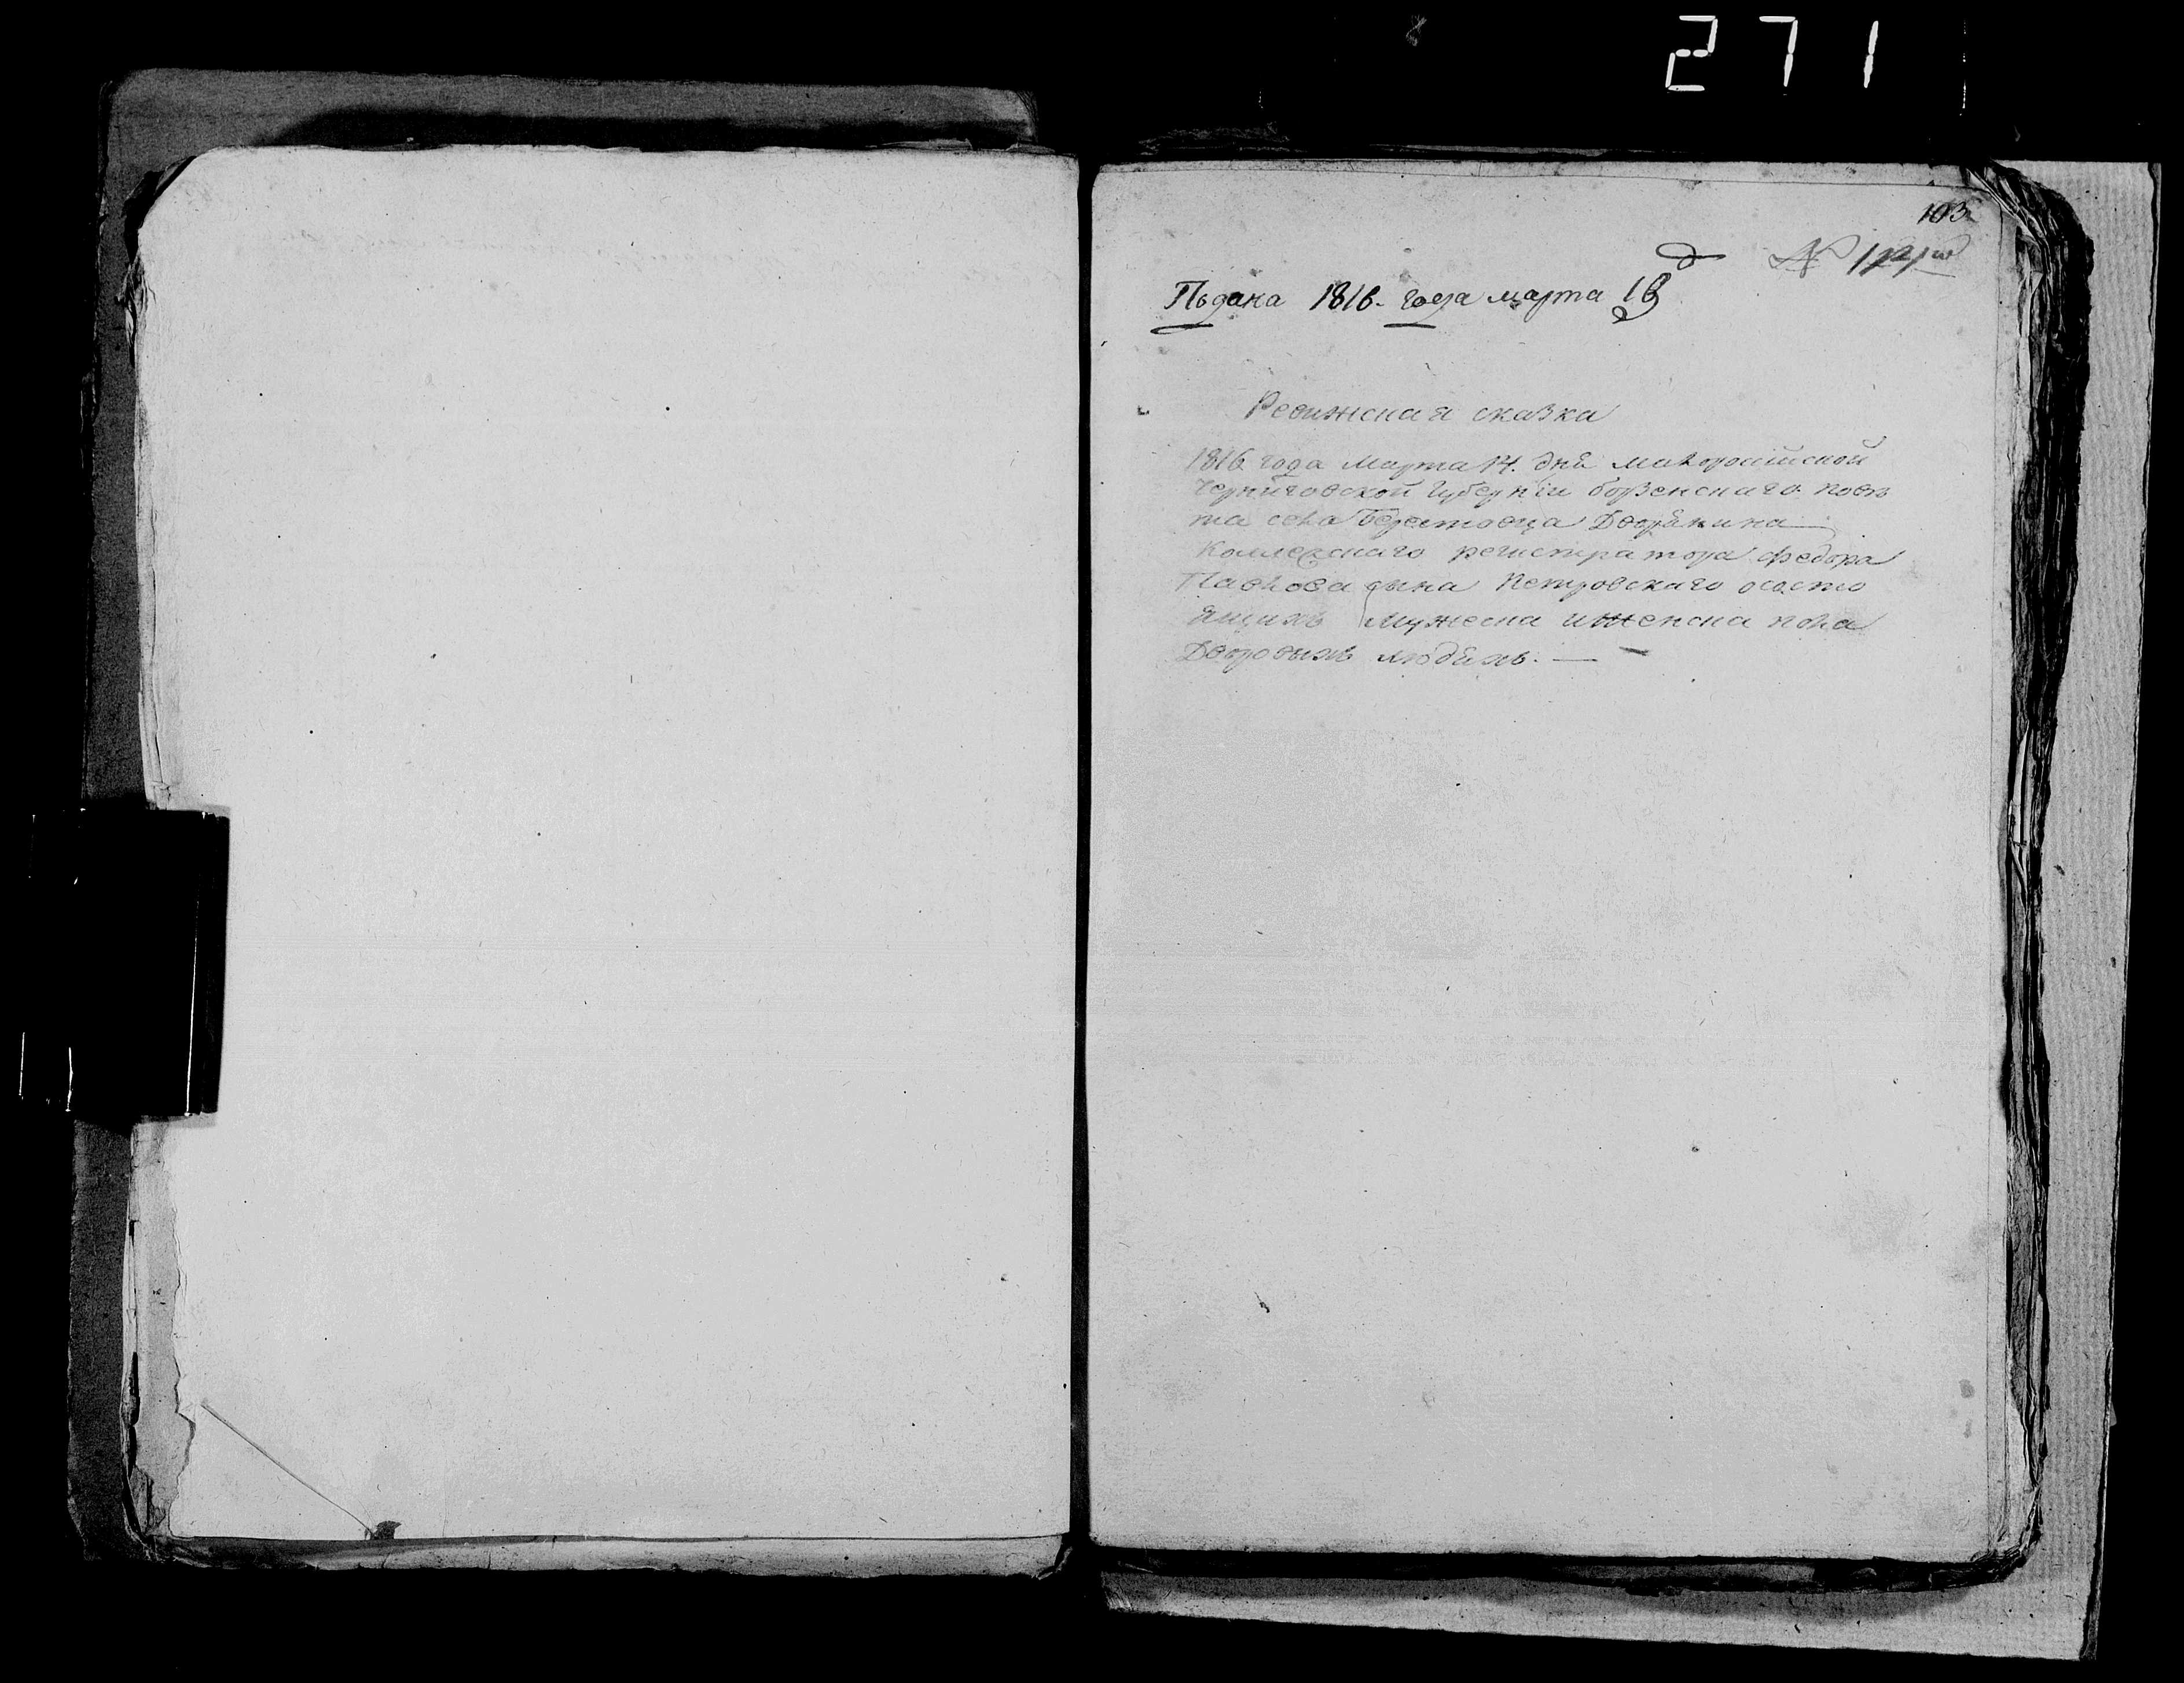 271
103
№ 121
Подана 1816. года марта 16 д
Ревижская сказка
1816 года Марта 14. дня малоросiйской
Чернiговской Губернiи борзенскаго повѣ
та села Берестовца Дворянина
Коллежскаго регистратора федора
Павлова сына Петровскаго осостo
ящихъ мужеска иженска пола
Дворовыхъ людяхъ. —